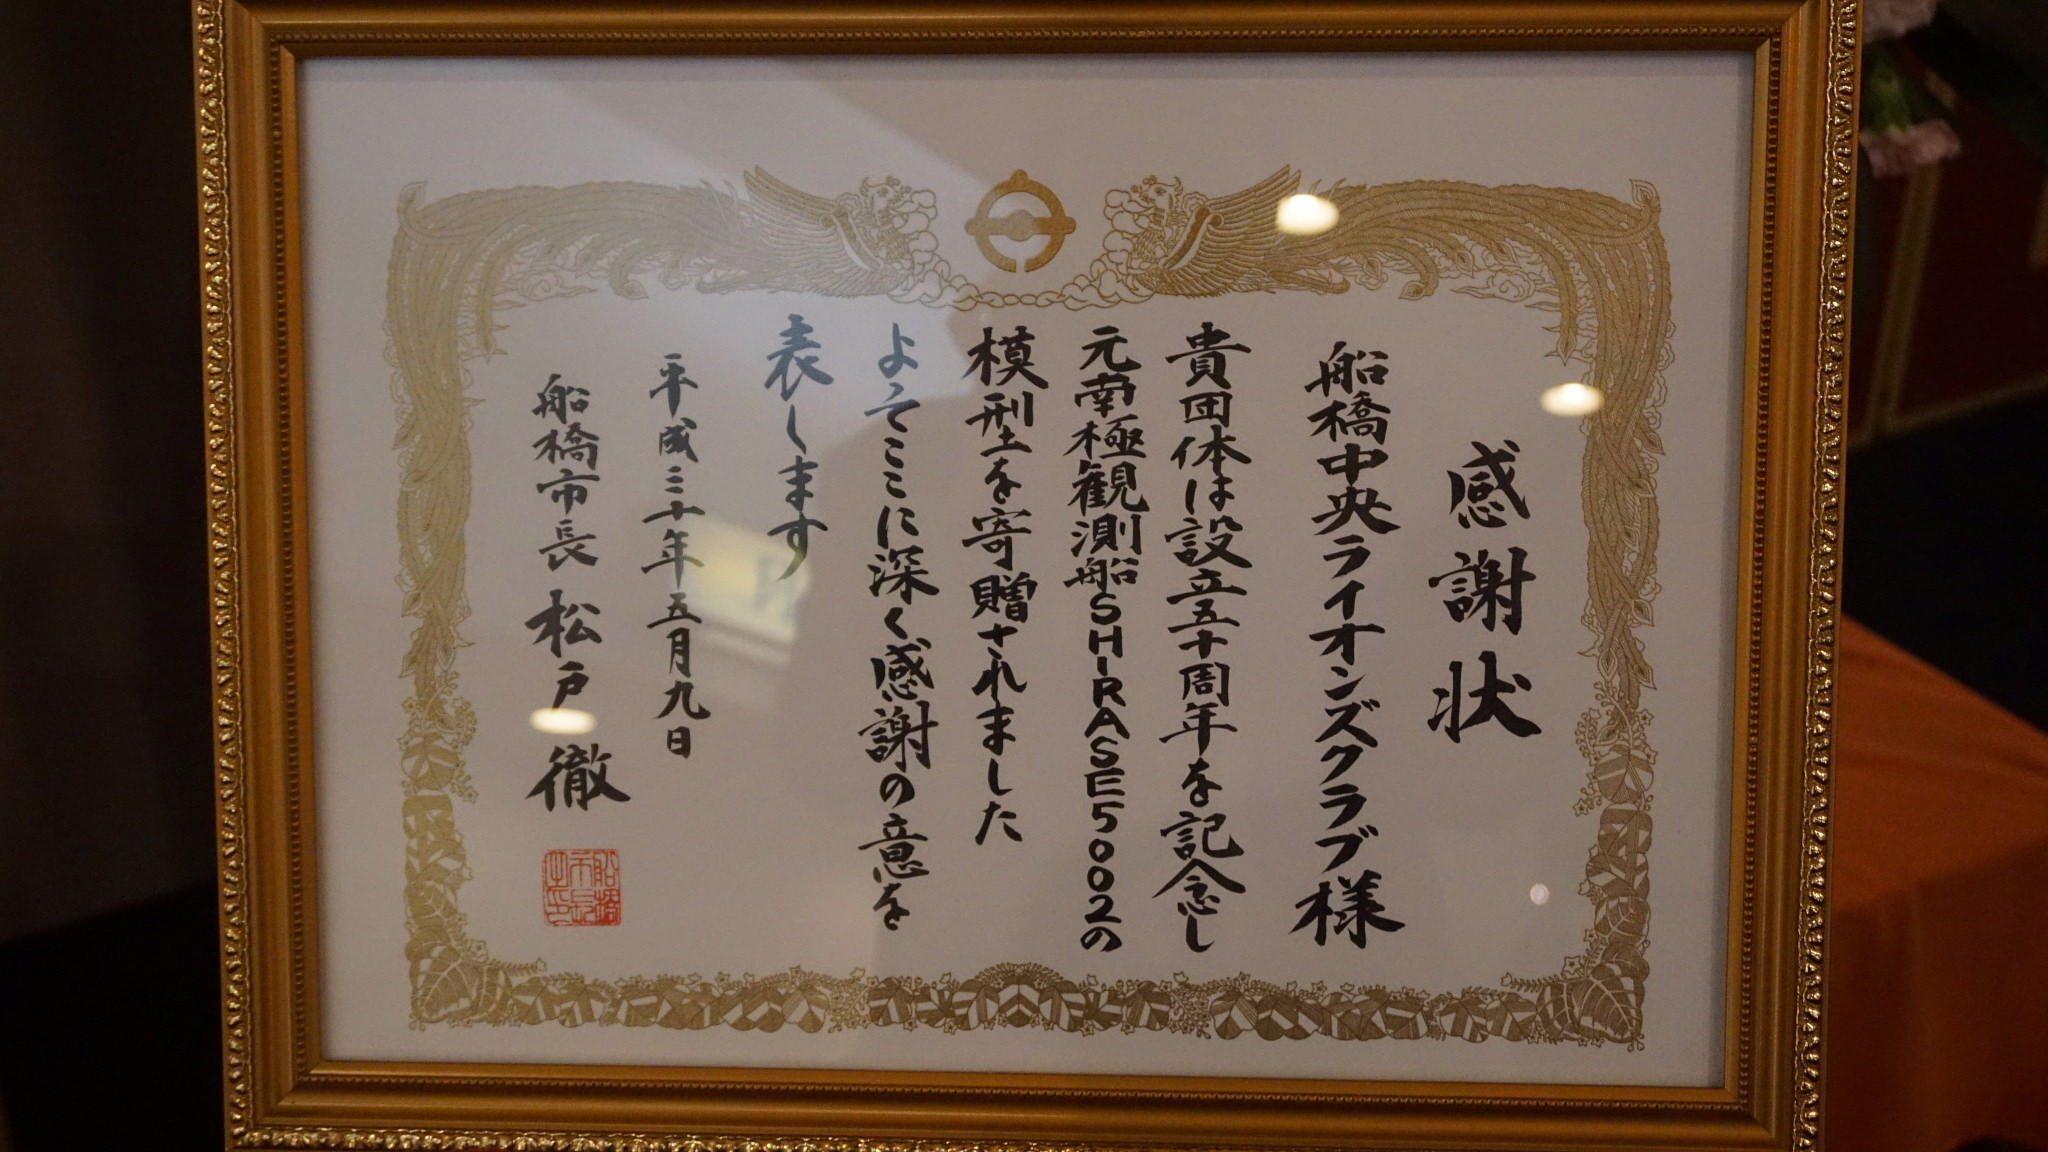 感謝状
船橋中央ライオンズクラブ様
貴団体は設立五十周年を記念し
元南極観測船SHIRASE5002の
模型を寄贈されました
よってここに深く感謝の意を
表します
平成三十年五月九日
船橋市長 松戸 徹
船橋市長之印